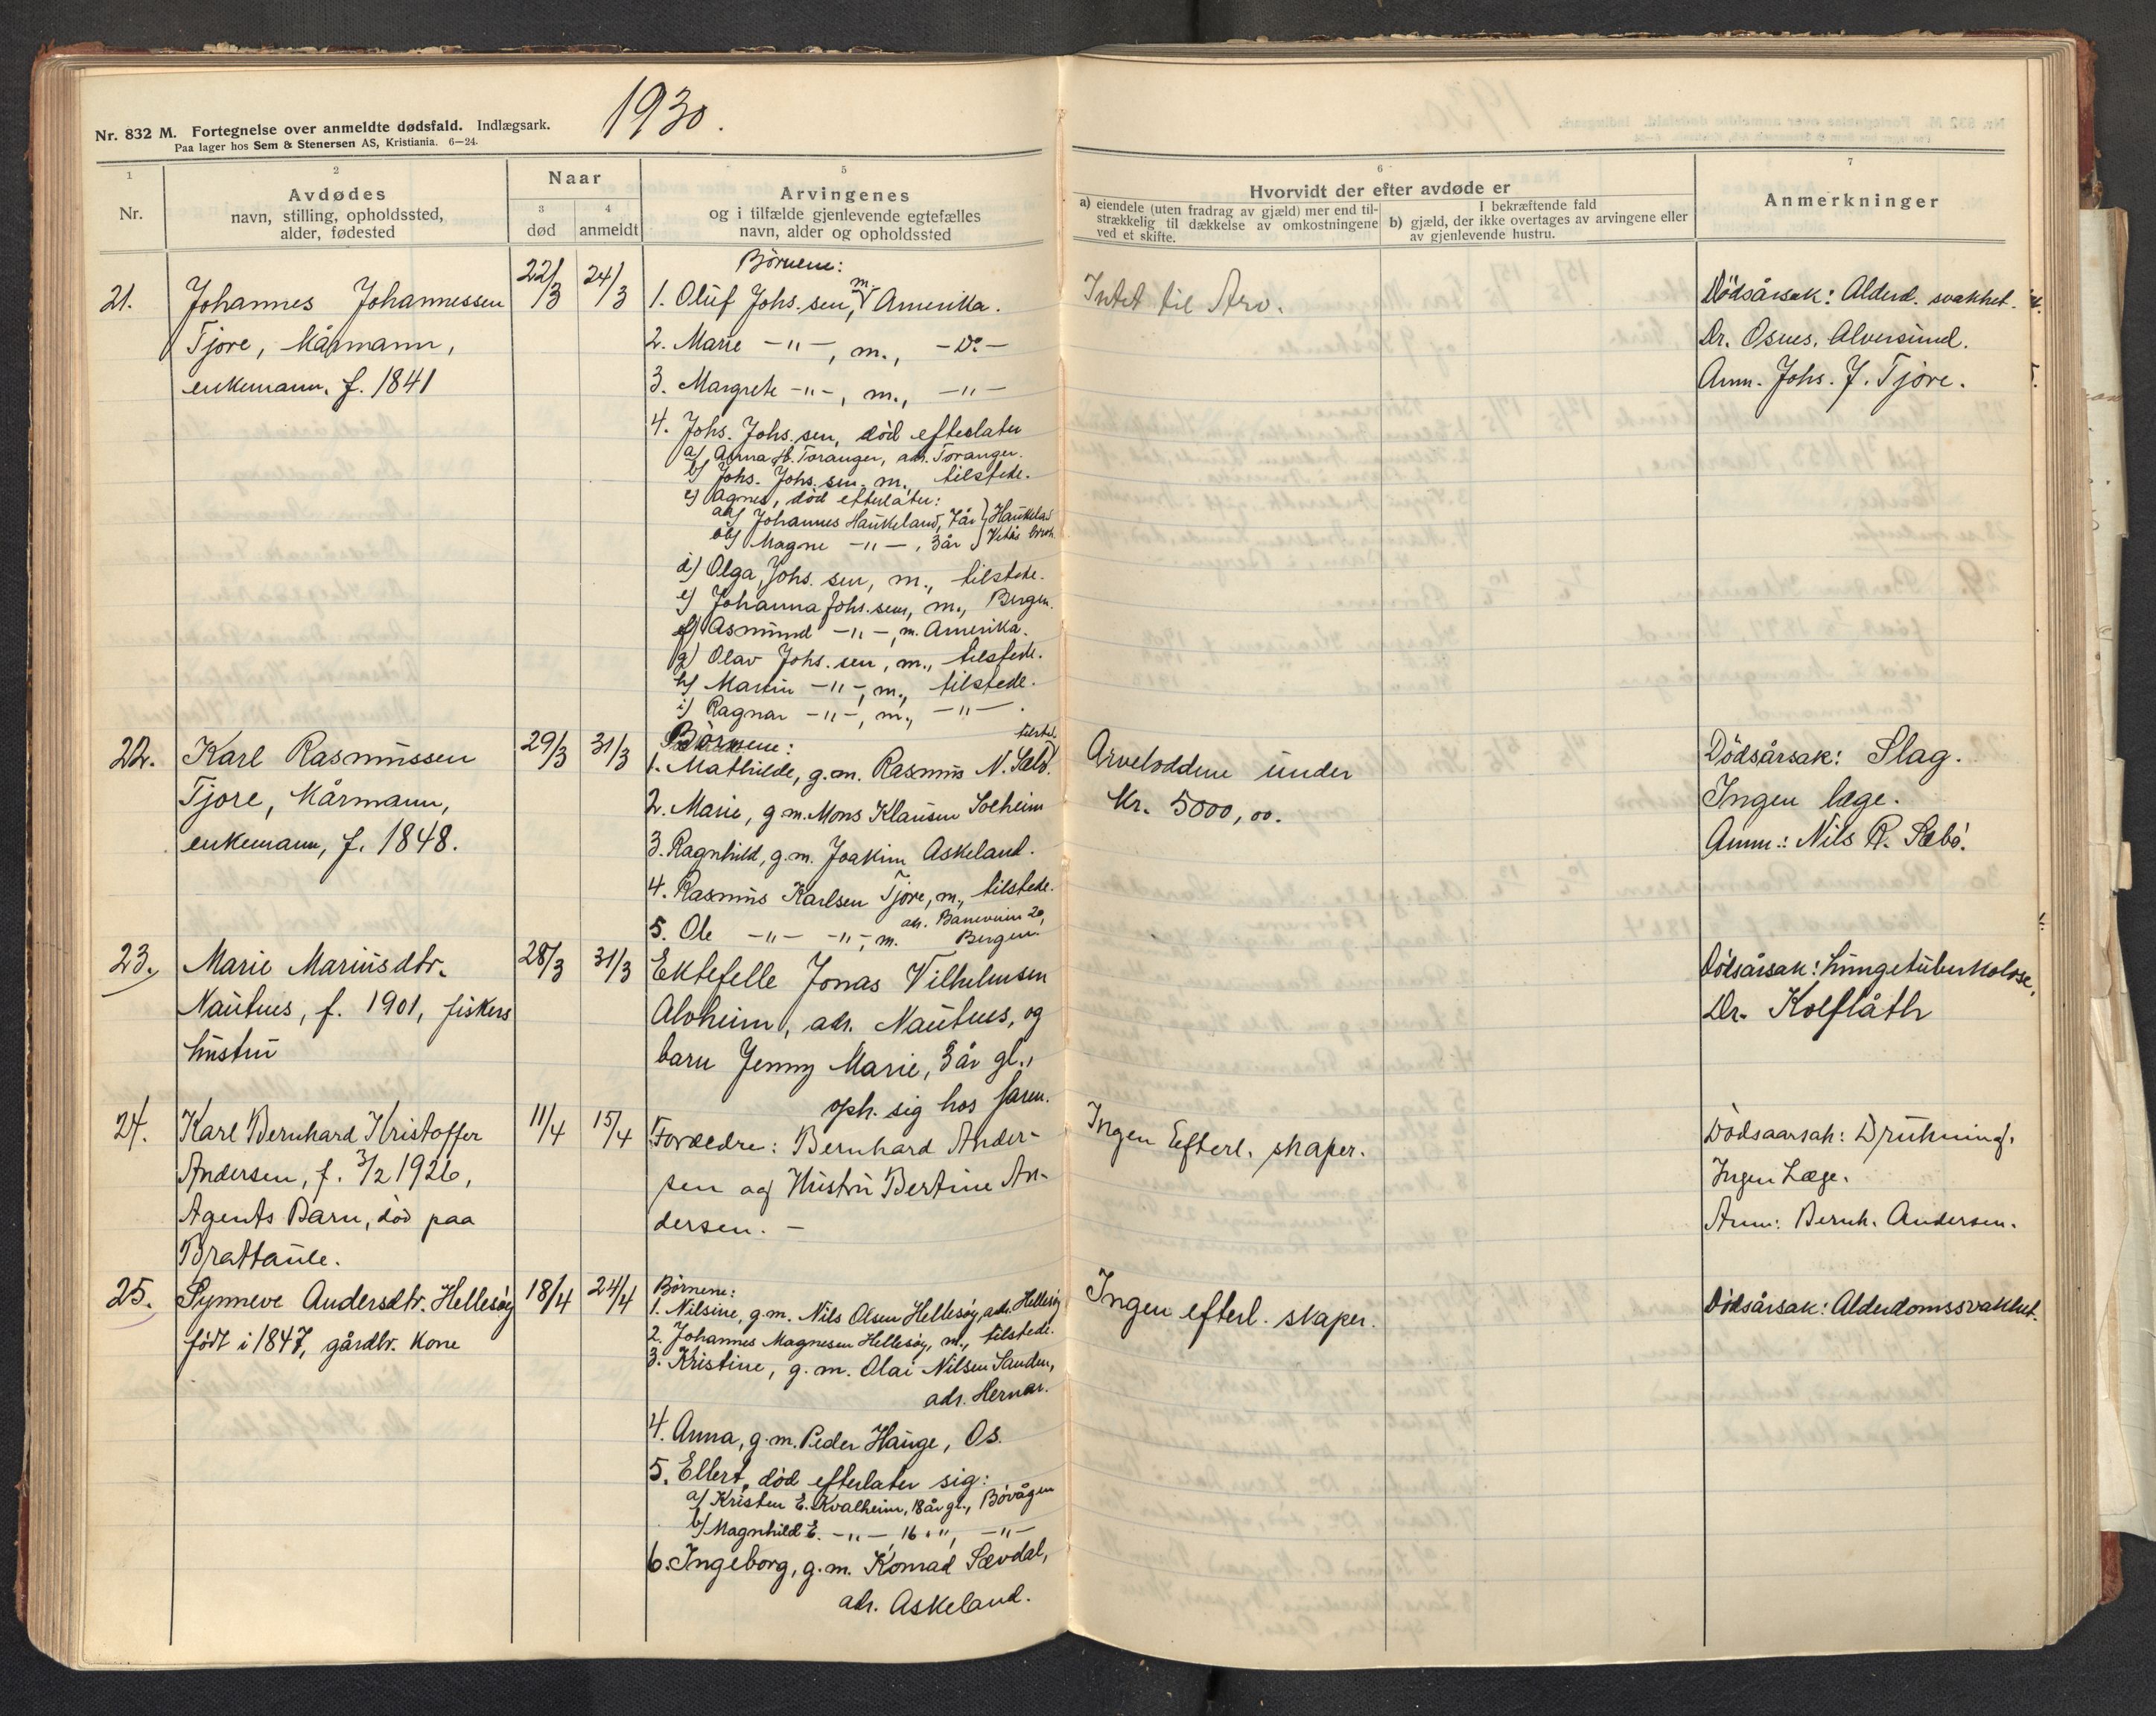 1930.
Nr. 832 M. Fortegnelse over anmeldte dødsfald. Indlægsark.
Paa lager hos Sem & Stenersen AS, Kristiania. 6—24.
1
2
Avdødes
navn, stilling, opholdssted,
alder, fødested
Nr.
Naar
3
død
4
anmeldt
5
Arvingenes
og i tilfælde gjenlevende egtefælles
navn, alder og opholdssted
6
Hvorvidt der efter avdøde er
a) eiendele (uten fradrag av gjæld) mer end til-
strækkelig til dækkelse av omkostningene
ved et skifte.
I bekræftende fald
b) gjæld, der ikke overtages av arvingene eller
av gjenlevende hustru.
7
Anmerkninger
21.
Johannes Johannessen
Tjore, kårmann,
enkemann, f. 1841
22/3
24/3
Børnene:
1. Oluf Johs.sen, m., Amerika.
2. Marie -"-, m., -Do-
3. Margrete -"-, m., -"-
4. Johs. Johs.sen, død efterlater
a) Anna Toranger, adr. Toranger.
b) Johs. Johs.sen, m., tilstede.
c) Agnes, død efterlater:
aa) Johannes Haukeland, 7 år } Haukeland
bb) Magne -"-, 3 år
d) Olga Johs.sen, m., tilstede.
e) Johanna Johs.sen, m., Bergen.
f) Asmund -"-, m. Amerika.
g) Olav Johs.sen, m., tilstede.
h) Martin -"-, m., tilstede.
i) Ragnar -"-, m., -"-.
Intet til Arv.
Dødsårsak: Alderd. svakhet.
Dr. Osnes, Alversund.
Anm. Johs. J. Tjore.
22.
Karl Rasmussen
Tjore, kårmann,
enkemann, f. 1848.
29/3
31/3
Børnene:
1. Mathilde, g.m. Rasmus N. Sæbø. tilsted.
2. Marie, g.m. Mons Klausen Solheim
3. Ragnhild, g.m. Joakim Askeland.
4. Rasmus Karlsen Tjore, m., tilstede.
5. Ole -"- -"-, m. adr. Baneveien 20,
Bergen.
Arveloddene under
Kr. 5000,00.
Dødsårsak: Slag.
Ingen læge.
Anm.: Nils R. Sæbø.
23.
Marie Mariusdtr.
Nautnes, f. 1901, fiskers
hustru
28/3
31/3
Ektefelle Jonas Vilhelmsen
Alvheim, adr. Nautnes, og
barn Jenny Marie, 3 år gl.,
oph. sig hos faren.
Dødsårsak: Lungetuberkolose,
Dr. Kolflåth
24.
Karl Bernhard Kristoffer
Andersen, f. 3/2 1926,
Agents Barn, død paa
Brattaule.
11/4
15/4
Foreldre: Bernhard Ander-
sen og Hustru Bertine An-
dersen. -
Ingen Efterl.skaper.
Dødsaarsak: Drukning.
Ingen Læge.
Anm: Bernh. Andersen.
25.
Synneve Andersdtr. Hellesøy
født i 1847, gårdbr. kone
18/4
24/4
Børnene:
1. Nilsine, g.m. Nils Olsen Hellesøy, adr. Hellesøy
2. Johannes Magnesen Hellesøy, m., tilstede.
3. Kristine, g.m. Olai Nilsen Sanden,
adr. Hernar.
4. Anna, g.m. Peder Hauge, Os.
5. Ellert, død efterlater sig:
a) Kristen E. Kvalheim, 18 år gl., Bøvågen
b) Magnhild E. -"-, 16 " ", -"-
6. Ingeborg, g.m. Konrad Sævdal,
adr. Askeland.
Ingen efterl.skaper.
Dødsårsak: Alderdomssvakhet.